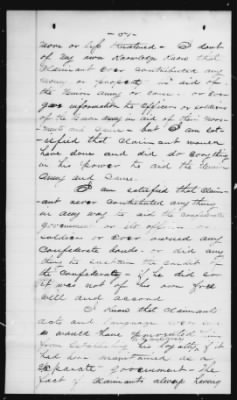 - 5 -
more or life threatened - I dont
of my own knowledge know that
Claimant ever contributed any
money or property in aid of
the Union army or cause - or ever
gave information to officers or soldiers
of the Union army in aid of their move-
ments and cause - but I am sat-
isfied that claimant would
have done and did do everything
in his power to aid the Union
Army and cause.
I am satisfied that claim-
ant never contributed anything
in any way to aid the confederate
government or its officers or
soldiers or ever owned any
Confederate bonds - or did any
thing to sustain the credit of
the confederacy - if he did so
it was not of his own free
will and accord
I know that claimants
acts and language were
as would have prevented
from establishing his loyalty, if it
had been maintained as a
separate government - The
fact of claimants always having